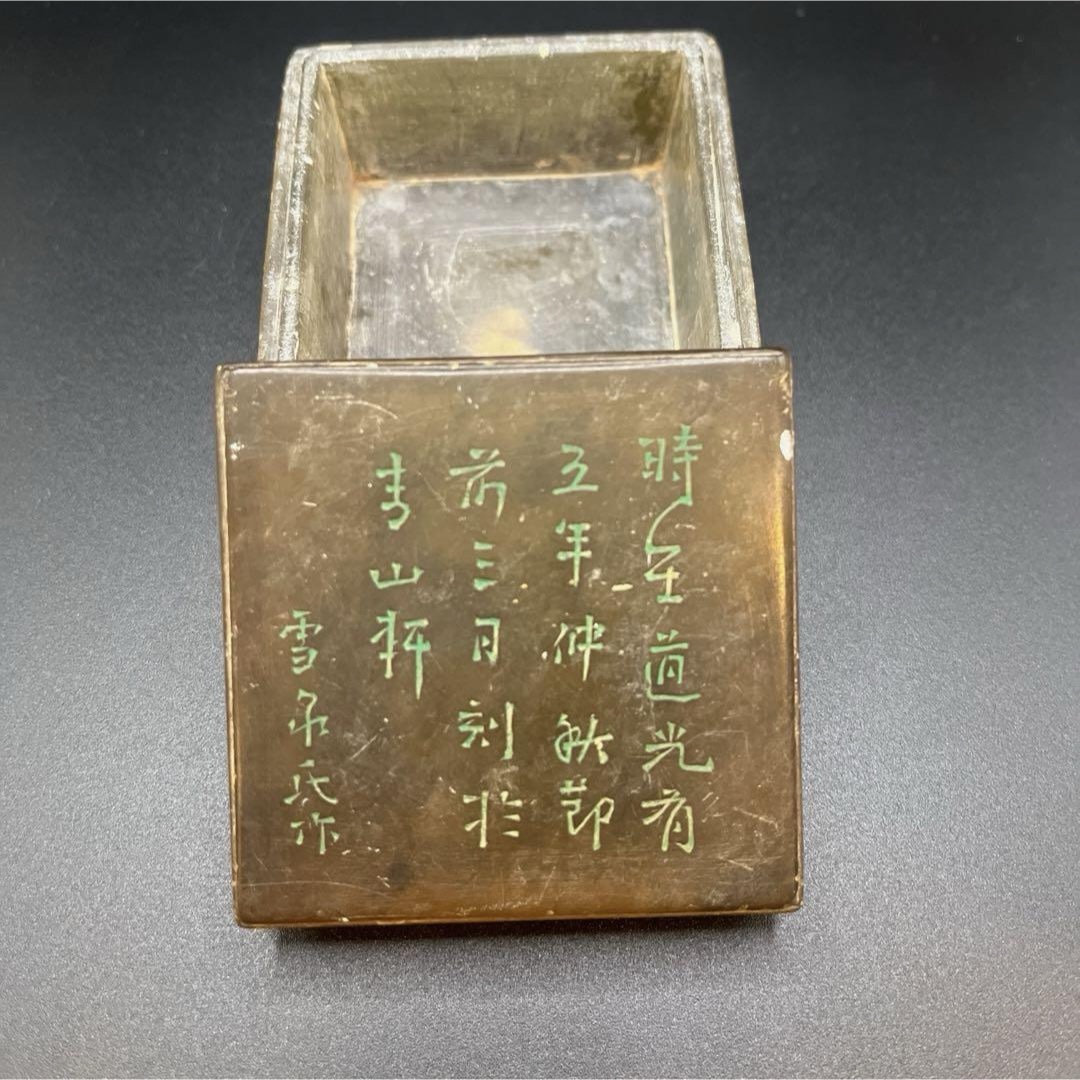 時在道光有
五年仲秋節
前三日刻於
青山軒
雪氏作